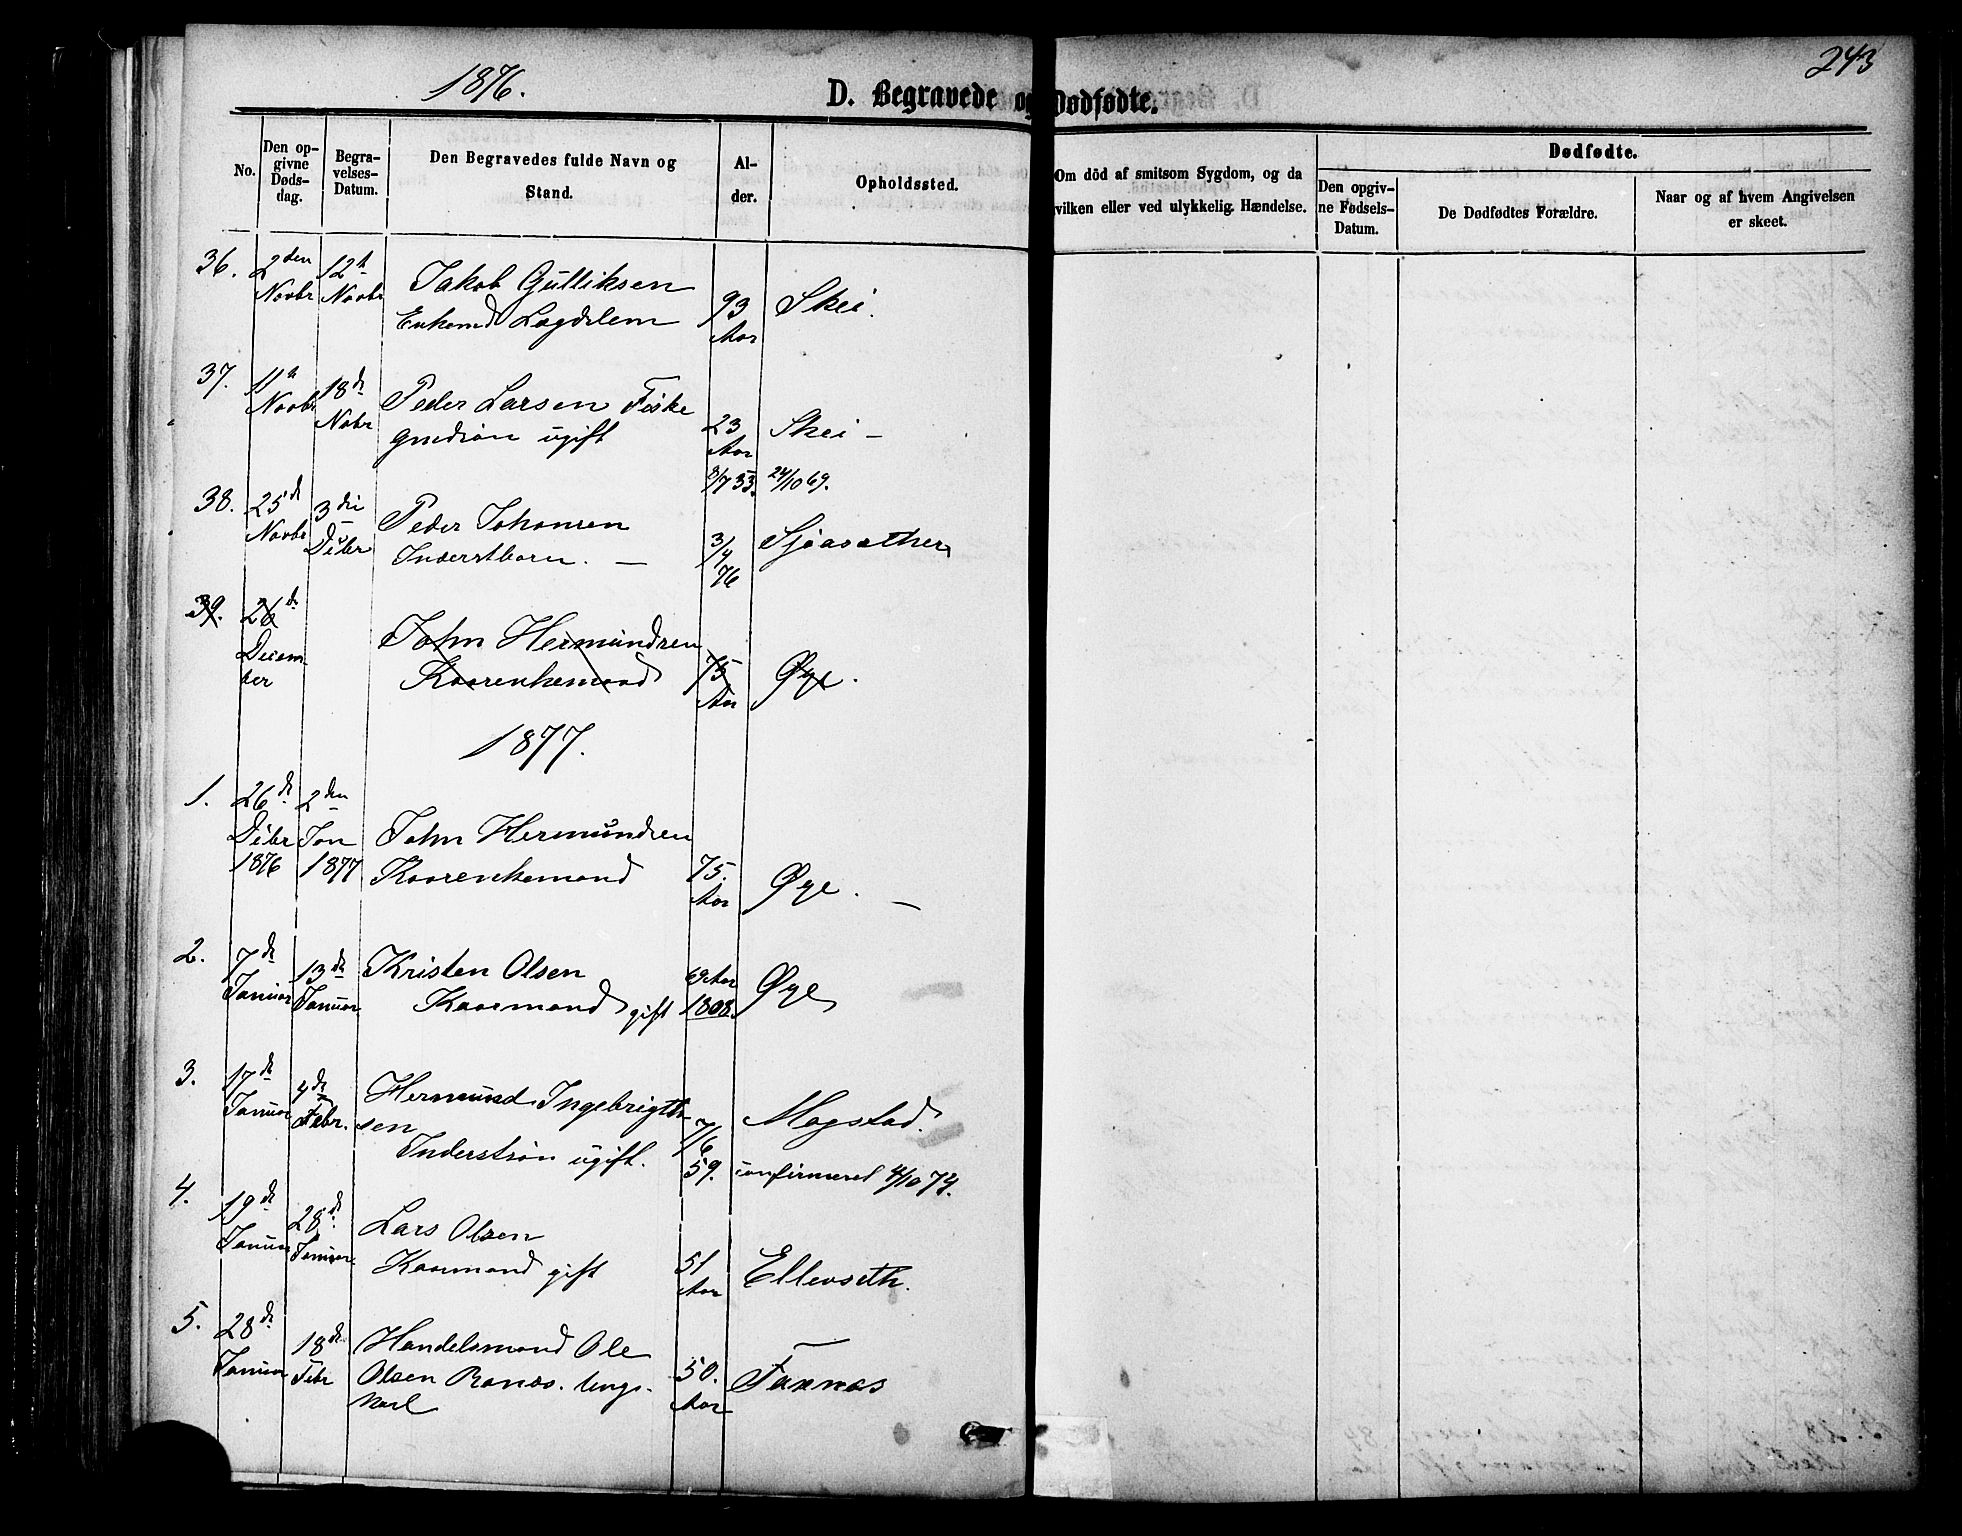 1876.
243
D. Begravede og Dødfødte.
No.
Den op-
givne
Døds-
dag.
Begra-
velses-
Datum.
Den Begravedes fulde Navn og
Stand.
Al-
der.
Opholdssted.
Om död af smitsom Sygdom, og da
vilken eller ved ulykkelig. Hændelse.
Dødfødte.
Den opgiv-
ne Fødsels-
Datum.
De Dødfødtes Forældre.
Naar og af hvem Angivelsen
er skeet.
36. 2den Novbr 12te Novbr Jakob Gulliksen
Enkemd Lægdslem 93 Aar Skei.
37. 11te Novbr 18de Nobr Peder Larsen Fiske
gmdsøn ugift 23 Aar Skei —
8/7 53. 24/10 69.
38. 25de Novbr 3die Debr Peder Johansen
Inderstbarn. — 3/4 76 Sjøasæther
39. 26de Decem-
ber John Hermundsen
Kaarenkemand 75 Aar Øye.
1877.
1. 26de Debr 1876 2den Jan 1877 John Hermundsen
Kaarenkemand 75. Aar Øye. —
2. 7de Januar 13de Januar Kristen Olsen
Kaarmand gift 69 Aar 1808. Øye
3. 17de Januar 4de Febr. Hermund Ingebrigt-
sen
Inderstsøn ugift. 7/6 59. Mogstad.
confirmeret 4/10 74.
4. 19de Januar 28de Januar Lars Olsen
Kaarmand gift 51 Aar Ellevseth.
5. 28de Januar 18de Febr Handelsmand Ole
Olsen Ranes. Ungs-
karl 50. Aar Taxnæs